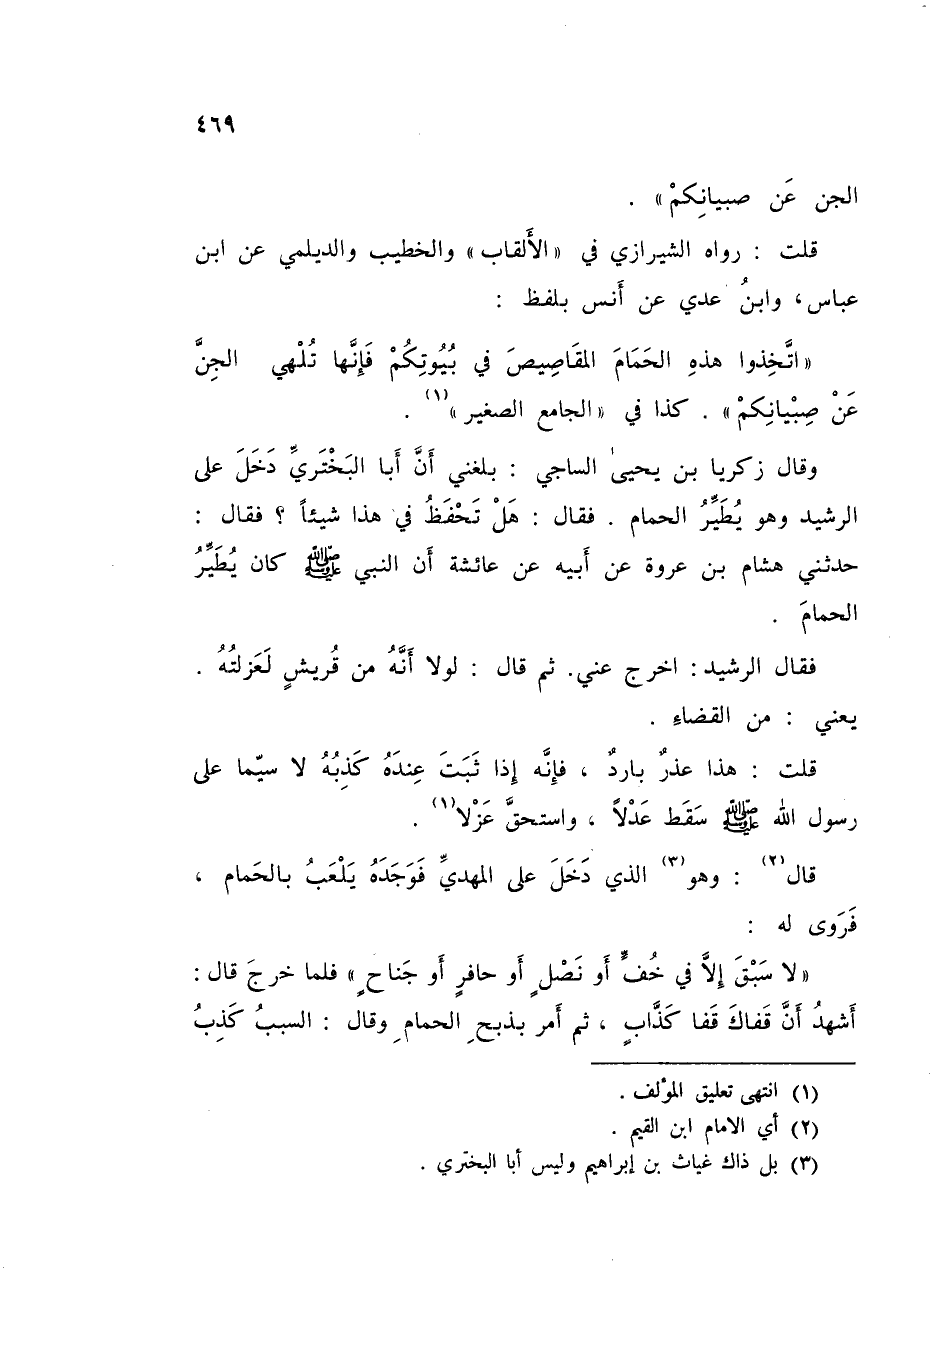 ٤٦٩
الجن عَن صبيانِكمْ» .
قلت : رواه الشيرازي في «الأَلقاب» والخطيب والديلمي عن ابن
عباس، وابنُ عدي عن أَنس بلفظ :
«اتَّخِذوا هذهِ الحَمَامَ المقَاصِيصَ في بُيُوتِكُمْ فَإِنَّها تُلْهي الجِنَّ
عَنْ صِبْيانِكمْ» . كذا في «الجامع الصغير»(١) .
وقال زكريا بن يحيىٰ الساجي : بلغني أَنَّ أَبا البَخْتَريِّ دَخَلَ على
الرشيد وهو يُطَيِّرُ الحمام . فقال : هَلْ تَحْفَظُ في هذا شيئاً ؟ فقال :
حدثني هشام بن عروة عن أَبيه عن عائشة أَن النبي ﷺ كان يُطَيِّرُ
الحمامَ .
فقال الرشيد : اخرج عني. ثم قال : لولا أَنَّهُ من قُريشٍ لَعَزلتُهُ .
يعني : من القضاءِ .
قلت : هذا عذرٌ باردٌ ، فإِنَّه إِذا ثَبَتَ عِندَهُ كَذِبُهُ لا سيّما على
رسول الله ﷺ سَقَط عَدْلاً ، واستحقَّ عَزْلا(١) .
قال(٢) : وهو(٣) الذي دَخَلَ على المهديِّ فَوَجَدَهُ يَلْعَبُ بالحَمام ،
فَرَوى له :
«لا سَبْقَ إِلاَّ في خُفٍّ أَو نَصْلٍ أَو حافرٍ أَو جَناحٍ» فلما خرجَ قال :
أَشهدُ أَنَّ قَفاكَ قَفا كَذَّابٍ ، ثم أَمر بذبحِ الحمامِ وقال : السببُ كَذِبُ
(١) انتهى تعليق المؤلف .
(٢) أي الامام ابن القيم .
(٣) بل ذاك غياث بن إبراهيم وليس أبا البختري .